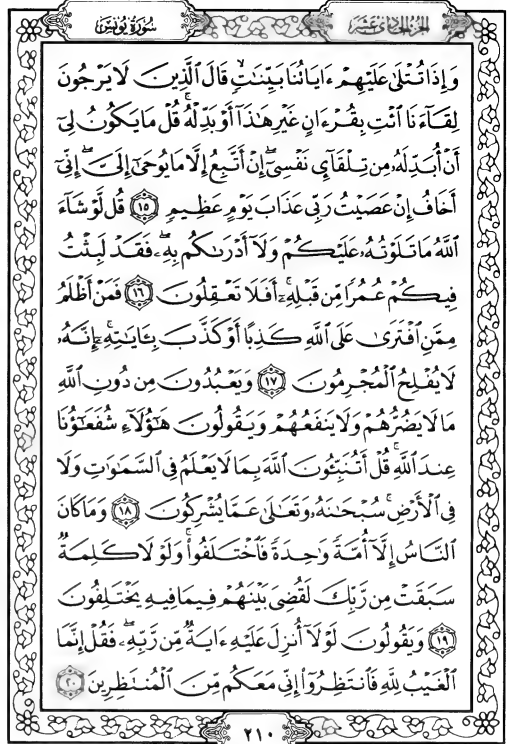 الجزء الحادي عشر
سورة يونس
وَإِذَا تُتْلَىٰ عَلَيْهِمْ ءَايَاتُنَا بَيِّنَـٰتٍۙ قَالَ الَّذِينَ لَا يَرْجُونَ
لِقَآءَنَا ائْتِ بِقُرْءَانٍ غَيْرِ هَـٰذَآ أَوْ بَدِّلْهُۚ قُلْ مَا يَكُونُ لِىٓ
أَنْ أُبَدِّلَهُۥ مِن تِلْقَآىِٕ نَفْسِىٓۖ إِنْ أَتَّبِعُ إِلَّا مَا يُوحَىٰٓ إِلَىَّۖ إِنِّىٓ
أَخَافُ إِنْ عَصَيْتُ رَبِّى عَذَابَ يَوْمٍ عَظِيمٍ ١٥ قُل لَّوْ شَآءَ
اللَّهُ مَا تَلَوْتُهُۥ عَلَيْكُمْ وَلَآ أَدْرَىٰكُم بِهِۦۖ فَقَدْ لَبِثْتُ
فِيكُمْ عُمُرًا مِّن قَبْلِهِۦٓۚ أَفَلَا تَعْقِلُونَ ١٦ فَمَنْ أَظْلَمُ
مِمَّنِ افْتَرَىٰ عَلَى اللَّهِ كَذِبًا أَوْ كَذَّبَ بِـَٔايَـٰتِهِۦٓۚ إِنَّهُۥ
لَا يُفْلِحُ الْمُجْرِمُونَ ١٧ وَيَعْبُدُونَ مِن دُونِ اللَّهِ
مَا لَا يَضُرُّهُمْ وَلَا يَنفَعُهُمْ وَيَقُولُونَ هَـٰٓؤُلَآءِ شُفَعَـٰٓؤُنَا
عِندَ اللَّهِۚ قُلْ أَتُنَبِّـُٔونَ اللَّهَ بِمَا لَا يَعْلَمُ فِى السَّمَـٰوَٰتِ وَلَا
فِى الْأَرْضِۚ سُبْحَـٰنَهُۥ وَتَعَـٰلَىٰ عَمَّا يُشْرِكُونَ ١٨ وَمَا كَانَ
النَّاسُ إِلَّآ أُمَّةً وَٰحِدَةً فَاخْتَلَفُوا۟ۚ وَلَوْلَا كَلِمَةٌ
سَبَقَتْ مِن رَّبِّكَ لَقُضِىَ بَيْنَهُمْ فِيمَا فِيهِ يَخْتَلِفُونَ
١٩ وَيَقُولُونَ لَوْلَآ أُنزِلَ عَلَيْهِ ءَايَةٌ مِّن رَّبِّهِۦۖ فَقُلْ إِنَّمَا
الْغَيْبُ لِلَّهِ فَانتَظِرُوٓا۟ إِنِّى مَعَكُم مِّنَ الْمُنتَظِرِينَ ٢٠
٢١٠